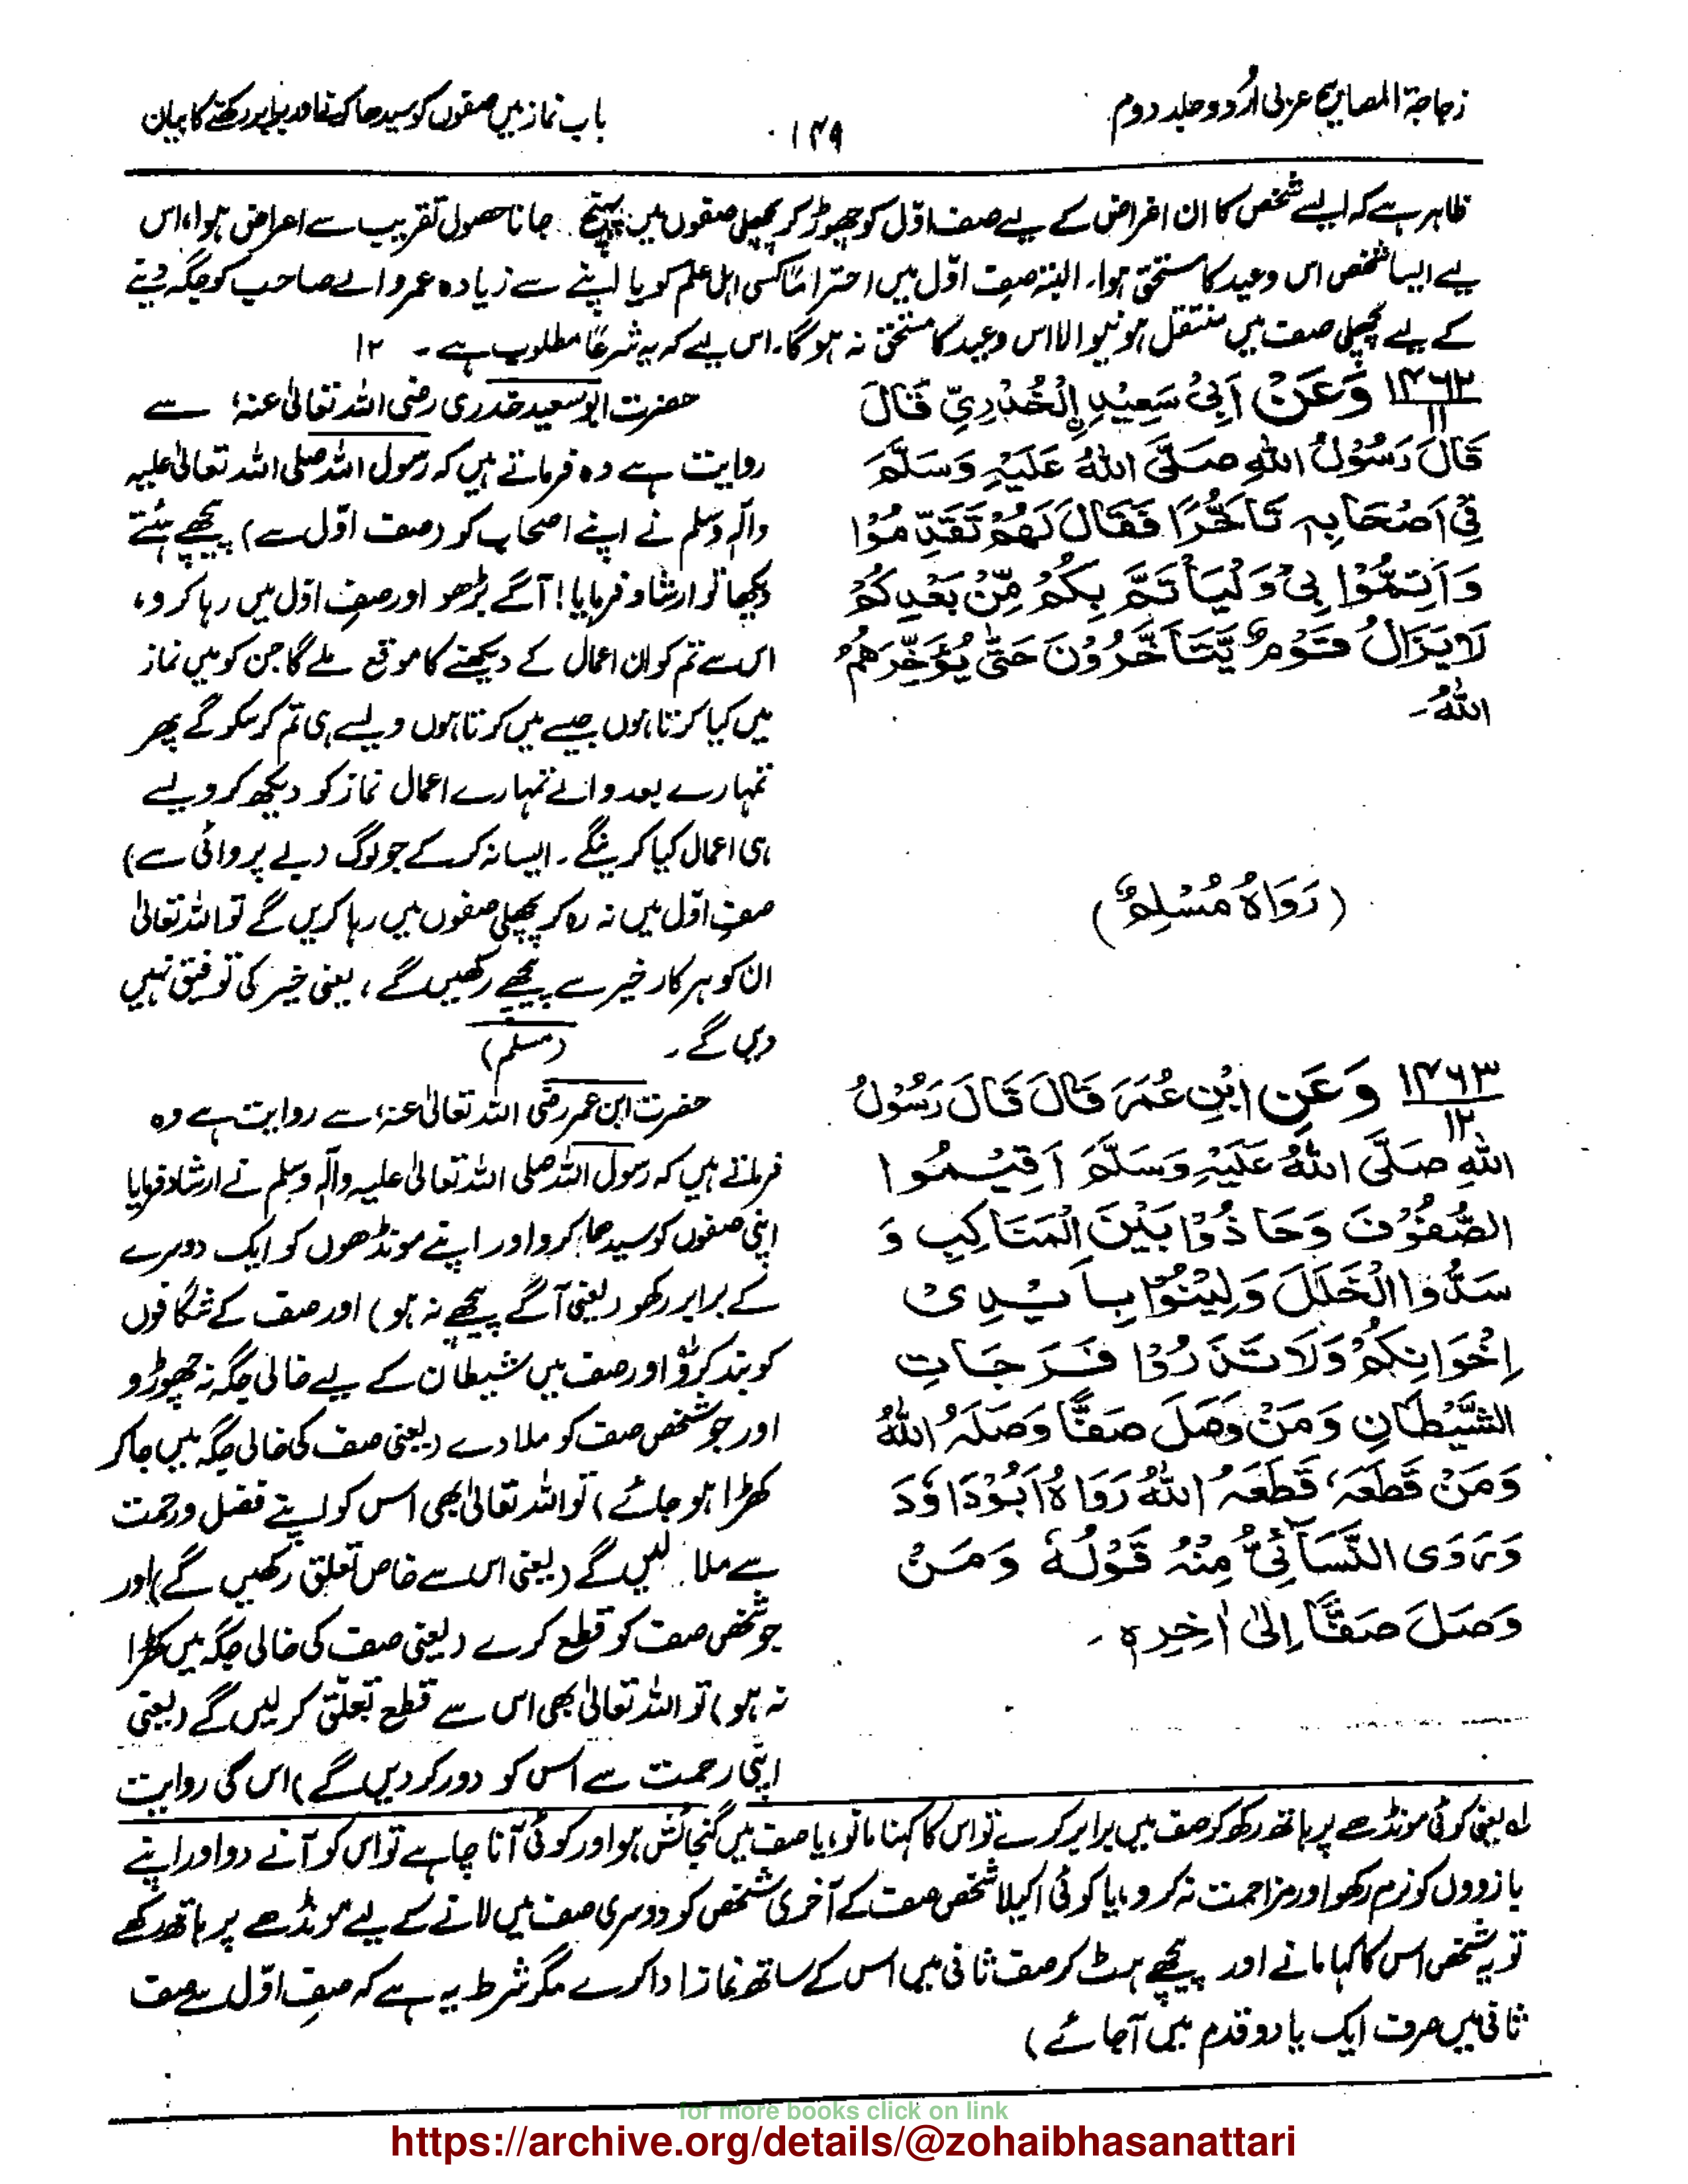 زجاجۃ المصابیح عربی اُردو جلد دوم
۱۴۹
باب نماز میں صفوں کو سیدھا کرنا اور برابر رکھنے کا بیان
ظاہر ہے کہ ایسے شخص کا ان اغراض کے لیے صف اوّل کو چھوڑ کر پچھلی صفوں میں پہنچ جانا حصول تقریب سے اعراض ہوا، اس
لیے ایسا شخص اس وعید کا مستحق ہوا۔ البتہ صفِ اوّل میں احتراماً کسی اہل علم کو یا اپنے سے زیادہ عمر والے صاحب کو جگہ دینے
کے لیے پچھلی صف میں منتقل ہونیوالا اس وعید کا مستحق نہ ہوگا۔ اس لیے کہ یہ شرعاً مطلوب ہے۔ ۱۲
۱۴۶۲
۱۱
وَعَنْ اَبِیْ سَعِیْدِ نِ الْخُدْرِیِّ قَالَ
قَالَ رَسُوْلُ اللّٰهِ صَلَّی اللّٰهُ عَلَیْهِ وَسَلَّمَ
فِیْ اَصْحَابِهٖ تَاَخُّرًا فَقَالَ لَهُمْ تَقَدَّمُوْا
وَاَتِمُّوْا بِیْ وَلْیَاْتَمَّ بِکُمْ مِّنْ بَعْدِکُمْ
لَا یَزَالُ قَوْمٌ یَّتَاَخَّرُوْنَ حَتّٰی یُؤَخِّرَهُمُ
اللّٰهُ۔
(رَوَاهُ مُسْلِمٌ)
حضرت ابوسعید خدری رضی اللہ تعالیٰ عنہٗ سے
روایت ہے وہ فرماتے ہیں کہ رسول اللہ صلی اللہ تعالیٰ علیہ
واٰلہٖ وسلم نے اپنے اصحاب کو (صف اوّل سے) پیچھے ہٹتے
دیکھا تو ارشاد فرمایا! آگے بڑھو اور صفِ اوّل میں رہا کرو،
اس سے تم کو ان اعمال کے دیکھنے کا موقع ملے گا جن کو میں نماز
میں کیا کرتا ہوں جیسے میں کرتا ہوں ویسے ہی تم کر سکو گے پھر
تمہارے بعد والے تمہارے اعمال نماز کو دیکھ کر ویسے
ہی اعمال کیا کرینگے۔ ایسا نہ کر کے جو لوگ (بے پروائی سے)
صفِ اوّل میں نہ رہ کر پچھلی صفوں میں رہا کریں گے تو اللہ تعالیٰ
ان کو ہر کار خیر سے پیچھے رکھیں گے، یعنی خیر کی توفیق نہیں
دیں گے۔ (مسلم)
۱۴۶۳
۱۲
وَعَنِ ابْنِ عُمَرَ قَالَ قَالَ رَسُوْلُ
اللّٰهِ صَلَّی اللّٰهُ عَلَیْهِ وَسَلَّمَ اَقِیْمُوا
الصُّفُوْفَ وَحَاذُوْا بَیْنَ الْمَنَاکِبِ وَ
سَدُّوا الْخَلَلَ وَلِیْنُوْا بِاَیْدِیْ
اِخْوَانِکُمْ وَلَا تَذَرُوْا فَرَجَاتِ
الشَّیْطَانِ وَمَنْ وَصَلَ صَفًّا وَصَلَهُ اللّٰهُ
وَمَنْ قَطَعَهٗ قَطَعَهُ اللّٰهُ رَوَاهُ اَبُوْدَاوٗدَ
وَرَوَی النَّسَآئِیُّ مِنْهُ قَوْلَهٗ وَمَنْ
وَصَلَ صَفًّا اِلٰی اٰخِرِهٖ۔
حضرت ابن عمر رضی اللہ تعالیٰ عنہٗ سے روایت ہے وہ
فرماتے ہیں کہ رسول اللہ صلی اللہ تعالیٰ علیہ واٰلہٖ وسلم نے ارشاد فرمایا
اپنی صفوں کو سیدھا کرو اور اپنے مونڈھوں کو ایک دوسرے
کے برابر رکھو (یعنی آگے پیچھے نہ ہو) اور صف کے شگافوں
کو بند کرو اور صف میں شیطان کے لیے خالی جگہ نہ چھوڑو
اور جو شخص صف کو ملا دے (یعنی صف کی خالی جگہ میں جا کر
کھڑا ہو جائے) تو اللہ تعالیٰ بھی اس کو اپنے فضل و رحمت
سے ملا لیں گے (یعنی اس سے خاص تعلق رکھیں گے) اور
جو شخص صف کو قطع کرے (یعنی صف کی خالی جگہ میں کھڑا
نہ ہو) تو اللہ تعالیٰ بھی اس سے قطع تعلّق کر لیں گے (یعنی
اپنی رحمت سے اس کو دور کر دیں گے) اس کی روایت
لہ یعنی کوئی مونڈھے پر ہاتھ رکھ کو صف میں برابر کرے تو اس کا کہنا مانو، یا صف میں گنجائش ہو اور کوئی آنا چاہے تو اس کو آنے دو اور اپنے
بازووں کو نرم رکھو اور مزاحمت نہ کرو، یا کوئی اکیلا شخص صف کے آخری شخص کو دوسری صف میں لانے کے لیے مونڈھے پر ہاتھ رکھے
تو یہ شخص اس کا کہا مانے اور پیچھے ہٹ کر صف ثانی میں اس کے ساتھ نماز ادا کرے مگر شرط یہ ہے کہ صفِ اوّل سے صف
ثانی میں صرف ایک یا دو قدم میں آجائے)
for more books click on link
https://archive.org/details/@zohaibhasanattari